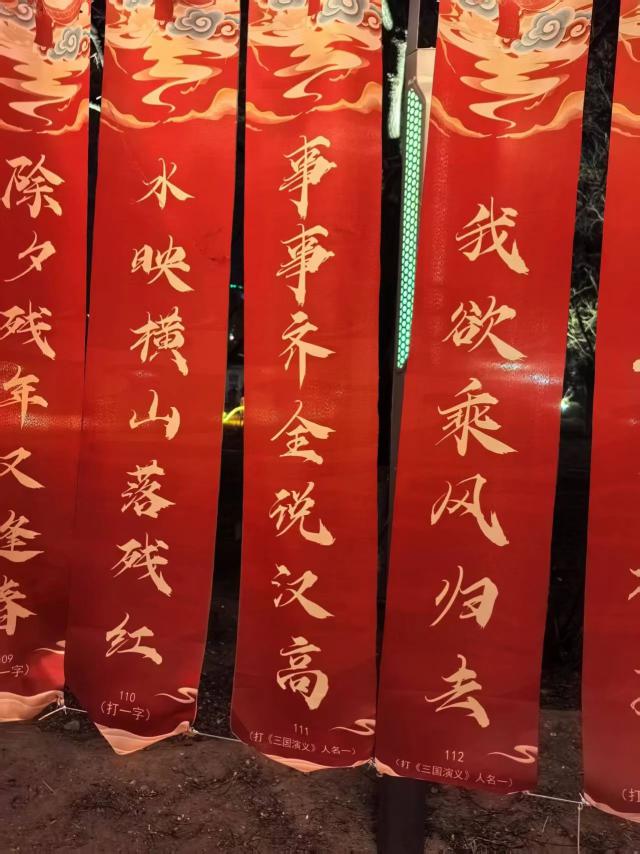 除夕残年又逢春
09
一字)
水映横山落残红
110
(打一字)
事事齐全说汉高
111
(打《三国演义》人名一)
我欲乘风归去
112
(打《三国演义》人名一)